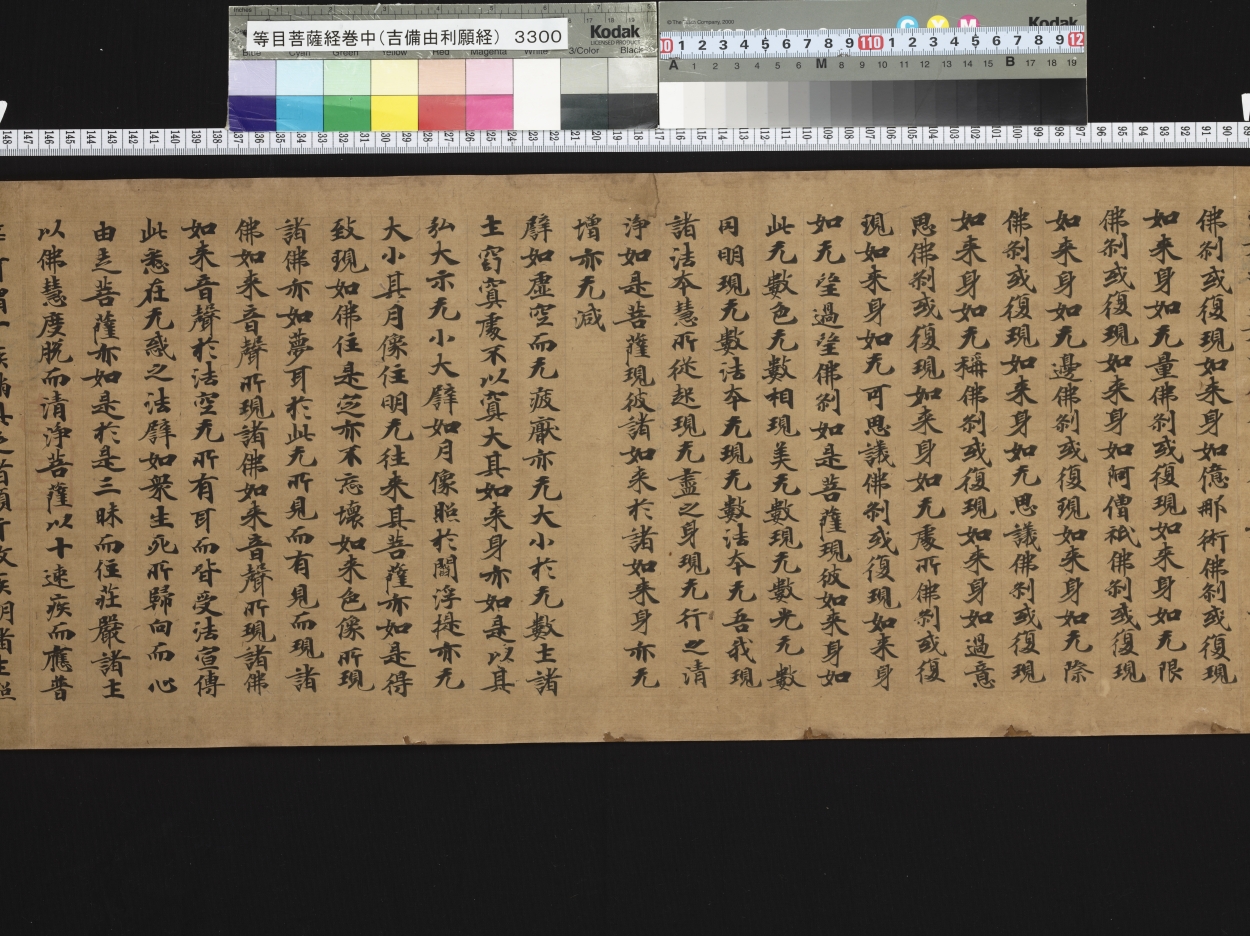 等目菩薩経巻中(吉備由利願経) 3300
Kodak
LICENSED PRODUCT
© The Tiffen Company, 2000
Kodak
C Y M
Blue Cyan Green Yellow Red Magenta White 3/Color Black
佛刹或復現如来身如億那術佛刹或復現
如来身如无量佛刹或復現如来身如无限
佛刹或復現如来身如阿僧祇佛刹或復現
如来身如无邊佛刹或復現如来身如无際
佛刹或復現如来身如无思議佛刹或復現
如来身如无稱佛刹或復現如来身如過意
思佛刹或復現如来身如无處所佛刹或復
現如来身如无可思議佛刹或復現如来身
如无坒過坒佛刹如是菩薩現彼如来身如
此无數色无數相現美无數現无數光无數
同明現无數法夲无現无數法夲无吾我現
諸法夲慧所從起現无盡之身現无行之清
浄如是菩薩現彼諸如来於諸如来身亦无
增亦无減
譬如虛空而无疲厭亦无大小於无數土諸
土窈冥處不以冥大其如来身亦如是以其
弘大示无小大譬如月像照於閻浮提亦无
大小其月像住明无往来其菩薩亦如是得
致現如佛住是定亦不忘壞如来色像所現
諸佛亦如夢耳於此无所見而有見而現諸
佛如来音聲所現諸佛如来音聲所現諸佛
如来音聲於法空无所有耳而皆受法宣傳
此悉在无惑之法譬如衆生死所歸向而心
由是菩薩亦如是於是三昧而住莊嚴諸土
以佛慧度脱而清浄菩薩以十速疾而應普